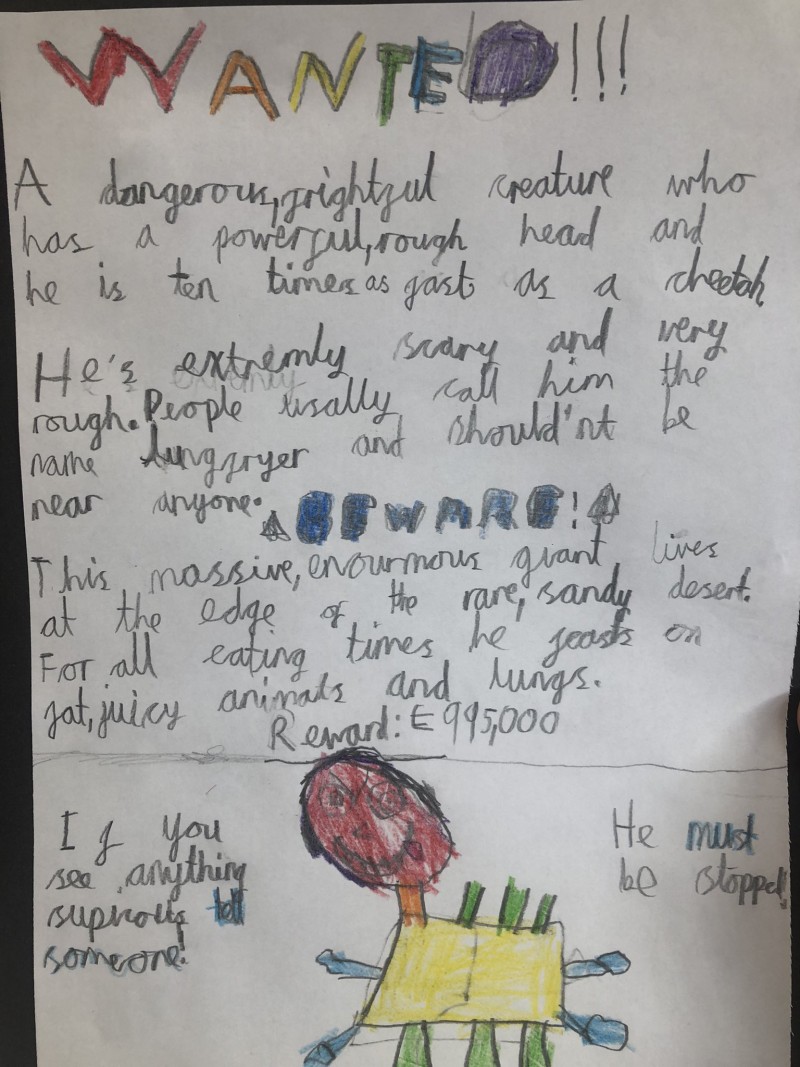 WANTED!!!
A dangerous, frightful creature who
has a powerful, rough head and
he is ten times as fast as a cheetah.
He's extremly scary and very
rough. People usally call him the
name lungfryer and should'nt be
near anyone. BEWARE!
This massive, enourmous giant lives
at the edge of the rare, sandy desert.
For all eating times he feasts on
fat, juicy animals and lungs.
Reward: £995,000
If you
see anything
tell
someone!
He must
be stopped!